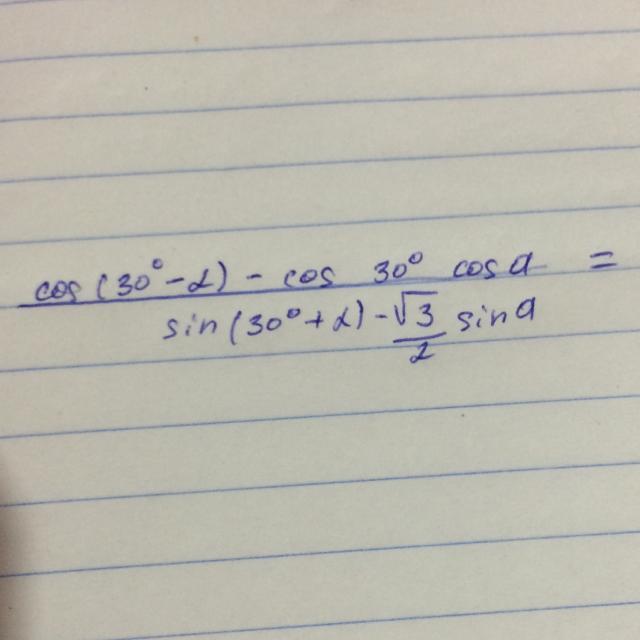 cos (30° - α) - cos 30° cos a =
sin (30° + α) - √3 sin a
2